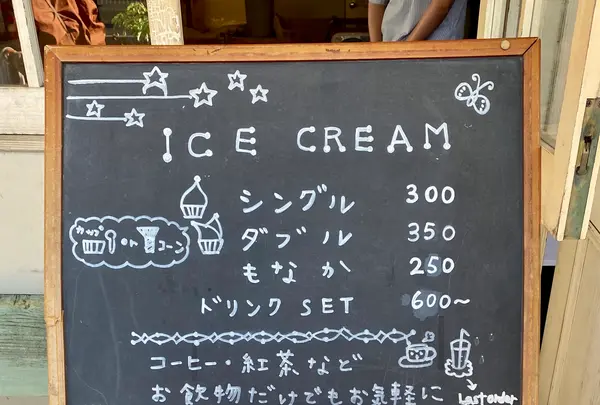 ICE CREAM
シングル 300
ダブル 350
カップ or コーン
もなか 250
ドリンク SET 600~
コーヒー・紅茶など
お飲物だけでもお気軽に
Last order